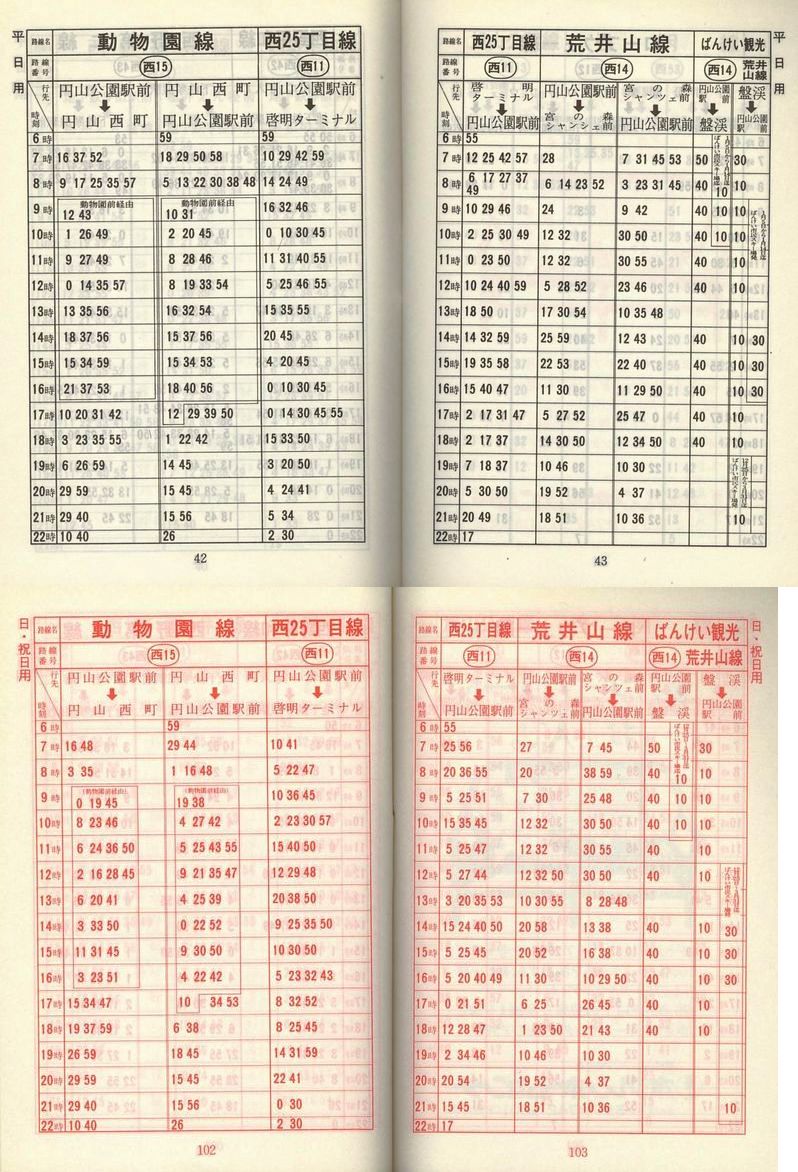 平日用
路線名 動物園線 西25丁目線
路線番号 西15 西11
行先 円山公園駅前 円山西町 円山公園駅前
時刻 円山西町 円山公園駅前 啓明ターミナル
6時 59 59
7時 16 37 52 18 29 50 58 10 29 42 59
8時 9 17 25 35 57 5 13 22 30 38 48 14 24 49
動物園前経由 動物園前経由
9時 12 43 10 31 16 32 46
10時 1 26 49 2 20 45 0 10 30 45
11時 9 27 49 8 28 46 11 31 40 55
12時 0 14 35 57 8 19 33 54 5 25 46 55
13時 13 35 56 16 32 54 15 35 55
14時 18 37 56 15 37 56 20 45
15時 15 34 59 15 34 53 4 20 45
16時 21 37 53 18 40 56 0 10 30 45
17時 10 20 31 42 12 29 39 50 0 14 30 45 55
18時 3 23 35 55 1 22 42 15 33 50
19時 6 26 59 14 45 3 20 50
20時 29 59 15 45 4 24 41
21時 29 40 15 56 5 34
22時 10 40 26 2 30
42
平日用
路線名 西25丁目線 荒井山線 ばんけい観光
路線番号 西11 西14 西14 荒井山線
行先 啓明ターミナル 円山公園駅前 宮の森シャンツェ前 円山公園駅前 盤渓
時刻 円山公園駅前 宮の森シャンツェ前 円山公園駅前 盤渓 円山公園駅前
6時 55
7時 12 25 42 57 28 7 31 45 53 50 30
8時 6 17 27 37 49 6 14 23 52 3 23 31 45 40 10 10
9時 10 29 46 24 9 42 40 10 10
10時 2 25 30 49 12 32 30 50 40 10 10
11時 0 23 50 12 32 30 55 40 10
12時 10 24 40 59 5 28 52 23 46 40 10
13時 18 50 17 30 54 10 35 48
14時 14 32 59 25 59 12 43 40 10 30
15時 19 35 58 22 53 22 40 40 10 30
16時 15 40 47 11 30 11 29 50 40 10 30
17時 2 17 31 47 5 27 52 25 47 40 10
18時 2 17 37 14 30 50 12 34 50 40 10
19時 7 18 37 10 46 10 30
20時 5 30 50 19 52 4 37
21時 20 49 18 51 10 36 10
22時 17
43
日・祝日用
路線名 動物園線 西25丁目線
路線番号 西15 西11
行先 円山公園駅前 円山西町 円山公園駅前
時刻 円山西町 円山公園駅前 啓明ターミナル
6時 59
7時 16 48 29 44 10 41
8時 3 35 1 16 48 5 22 47
(動物園前経由) (動物園前経由)
9時 0 19 45 19 38 10 36 45
10時 8 23 46 4 27 42 2 23 30 57
11時 6 24 36 50 5 25 43 55 15 40 50
12時 2 16 28 45 9 21 35 47 12 29 48
13時 6 20 41 4 25 39 20 38 50
14時 3 33 50 0 22 52 9 25 35 50
15時 11 31 45 9 30 50 10 30 50
16時 3 23 51 4 22 42 5 23 32 43
17時 15 34 47 10 34 53 8 32 52
18時 19 37 59 6 38 8 25 45
19時 26 59 18 45 14 31 59
20時 29 59 15 45 22 41
21時 29 40 15 56 0 30
22時 10 40 26 2 30
102
日・祝日用
路線名 西25丁目線 荒井山線 ばんけい観光
路線番号 西11 西14 西14 荒井山線
行先 啓明ターミナル 円山公園駅前 宮の森シャンツェ前 円山公園駅前 盤渓
時刻 円山公園駅前 宮の森シャンツェ前 円山公園駅前 盤渓 円山公園駅前
6時 55
7時 25 56 27 7 45 50 30
8時 20 36 55 20 38 59 40 10 10
9時 5 25 51 7 30 25 48 40 10 10
10時 15 35 45 12 32 30 50 40 10 10
11時 5 25 47 12 32 30 55 40 10
12時 5 27 44 12 32 50 30 50 40 10
13時 3 20 35 53 10 30 55 8 28 48
14時 15 24 40 50 20 58 13 38 40 10 30
15時 5 25 45 20 52 16 38 40 10 30
16時 5 20 40 49 11 30 10 29 50 40 10 30
17時 0 21 51 6 25 26 45 40 10
18時 12 28 47 1 23 50 21 43 40 10
19時 2 34 46 10 46 10 30
20時 20 54 19 52 4 37
21時 15 45 18 51 10 36 10
22時 17
103